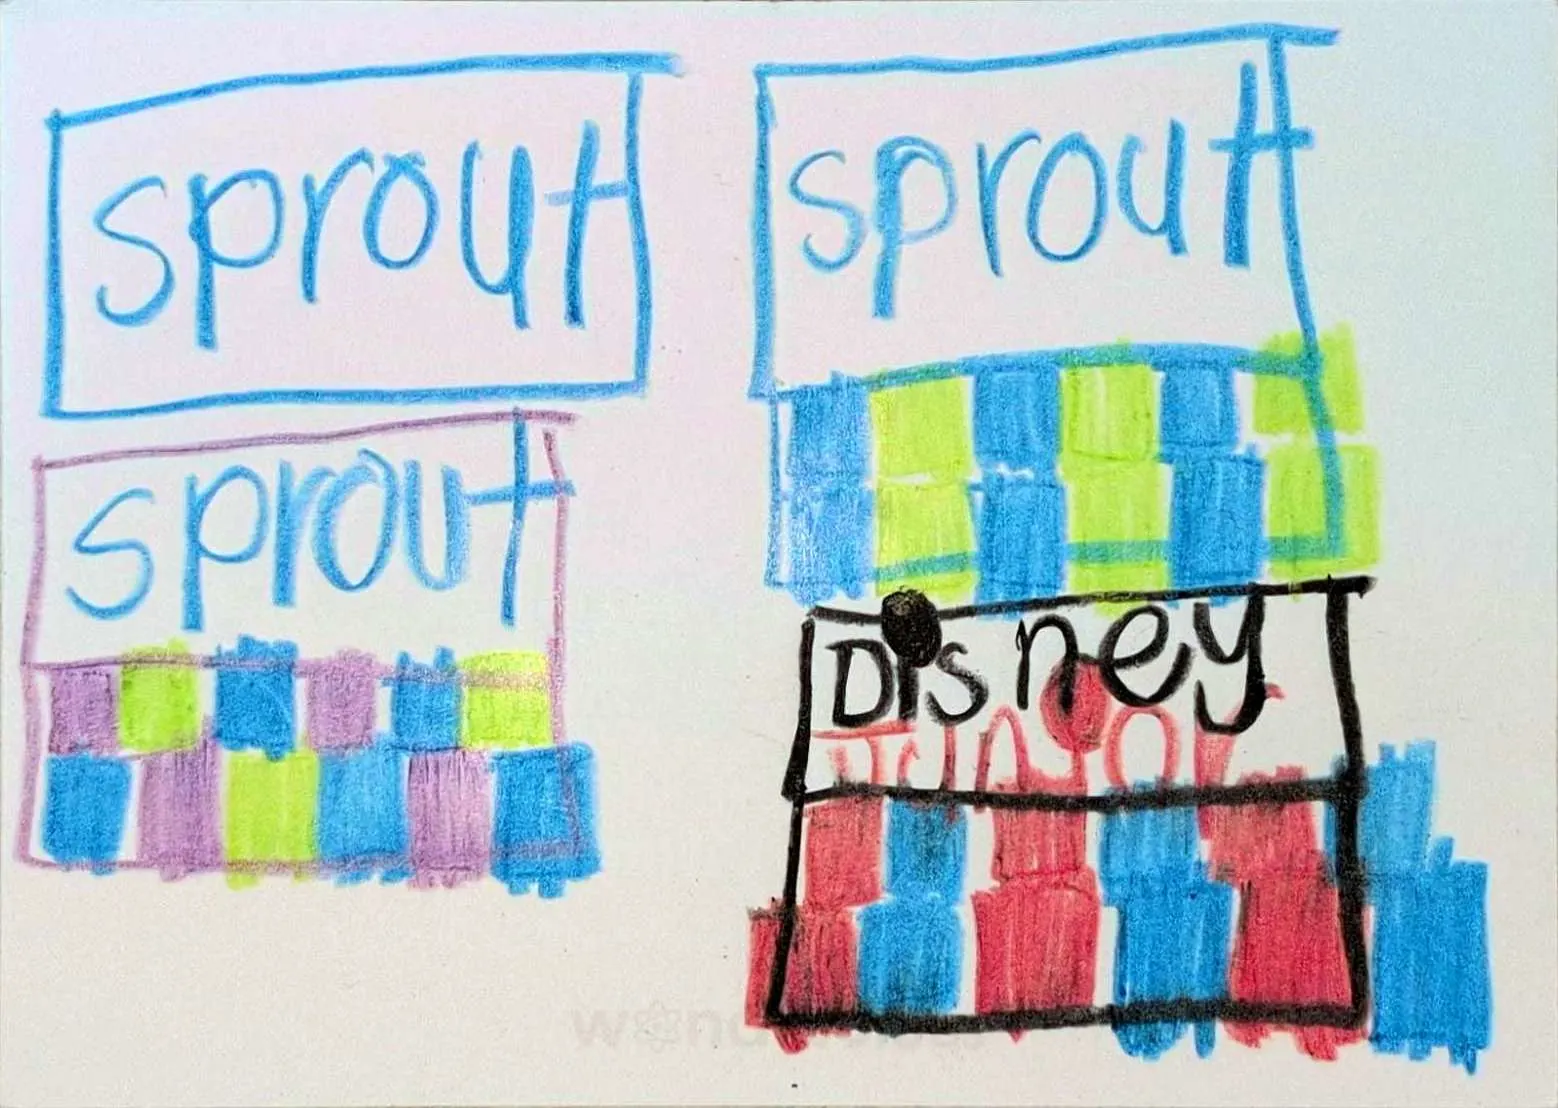 sprout
sprout
sprout
Disney
Junior